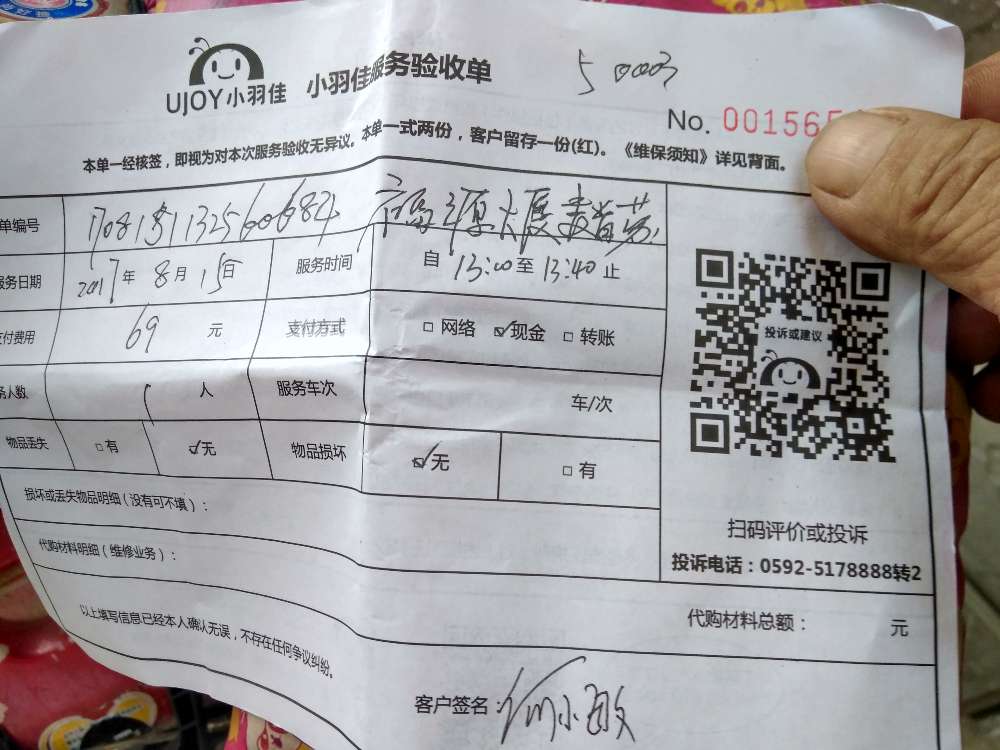 UJOY小羽佳 小羽佳服务验收单
No. 00156
本单一经核签，即视为对本次服务验收无异议。本单一式两份，客户留存一份(红)。《维保须知》详见背面。
单编号
服务日期 2017年 8月 15日 服务时间 自 13:00 至 13:40 止
支付费用 69 元 支付方式 □ 网络 ☑ 现金 □ 转账
务人数 1 人 服务车次 车/次
物品丢失 □有 ☑无 物品损坏 ☑无 □有
损坏或丢失物品明细（没有可不填）：
代购材料明细（维修业务）：
投诉或建议
扫码评价或投诉
投诉电话：0592-5178888转2
代购材料总额： 元
以上填写信息已经本人确认无误，不存在任何争议纠纷。
客户签名：何小敏